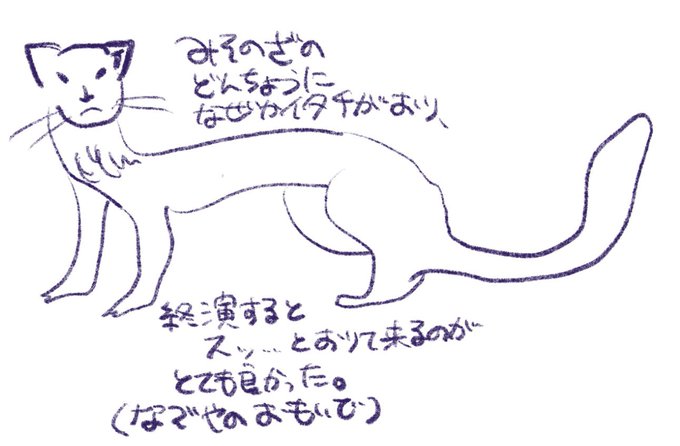 みそのざの
どんちょうに
なぜかイタチがおり、
終演すると
スッ…とおりて来るのが
とても良かった。
(なごやのおもいで)